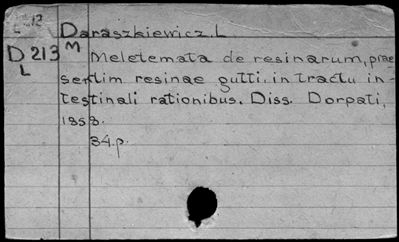 L 212 Daraszkiewicz. L
D 213 M Meletemata de resinarum, prae
L sertim resinae gutti. in tractu in-
testinali rationibus. Diss. Dorpati,
1858.
34.p.